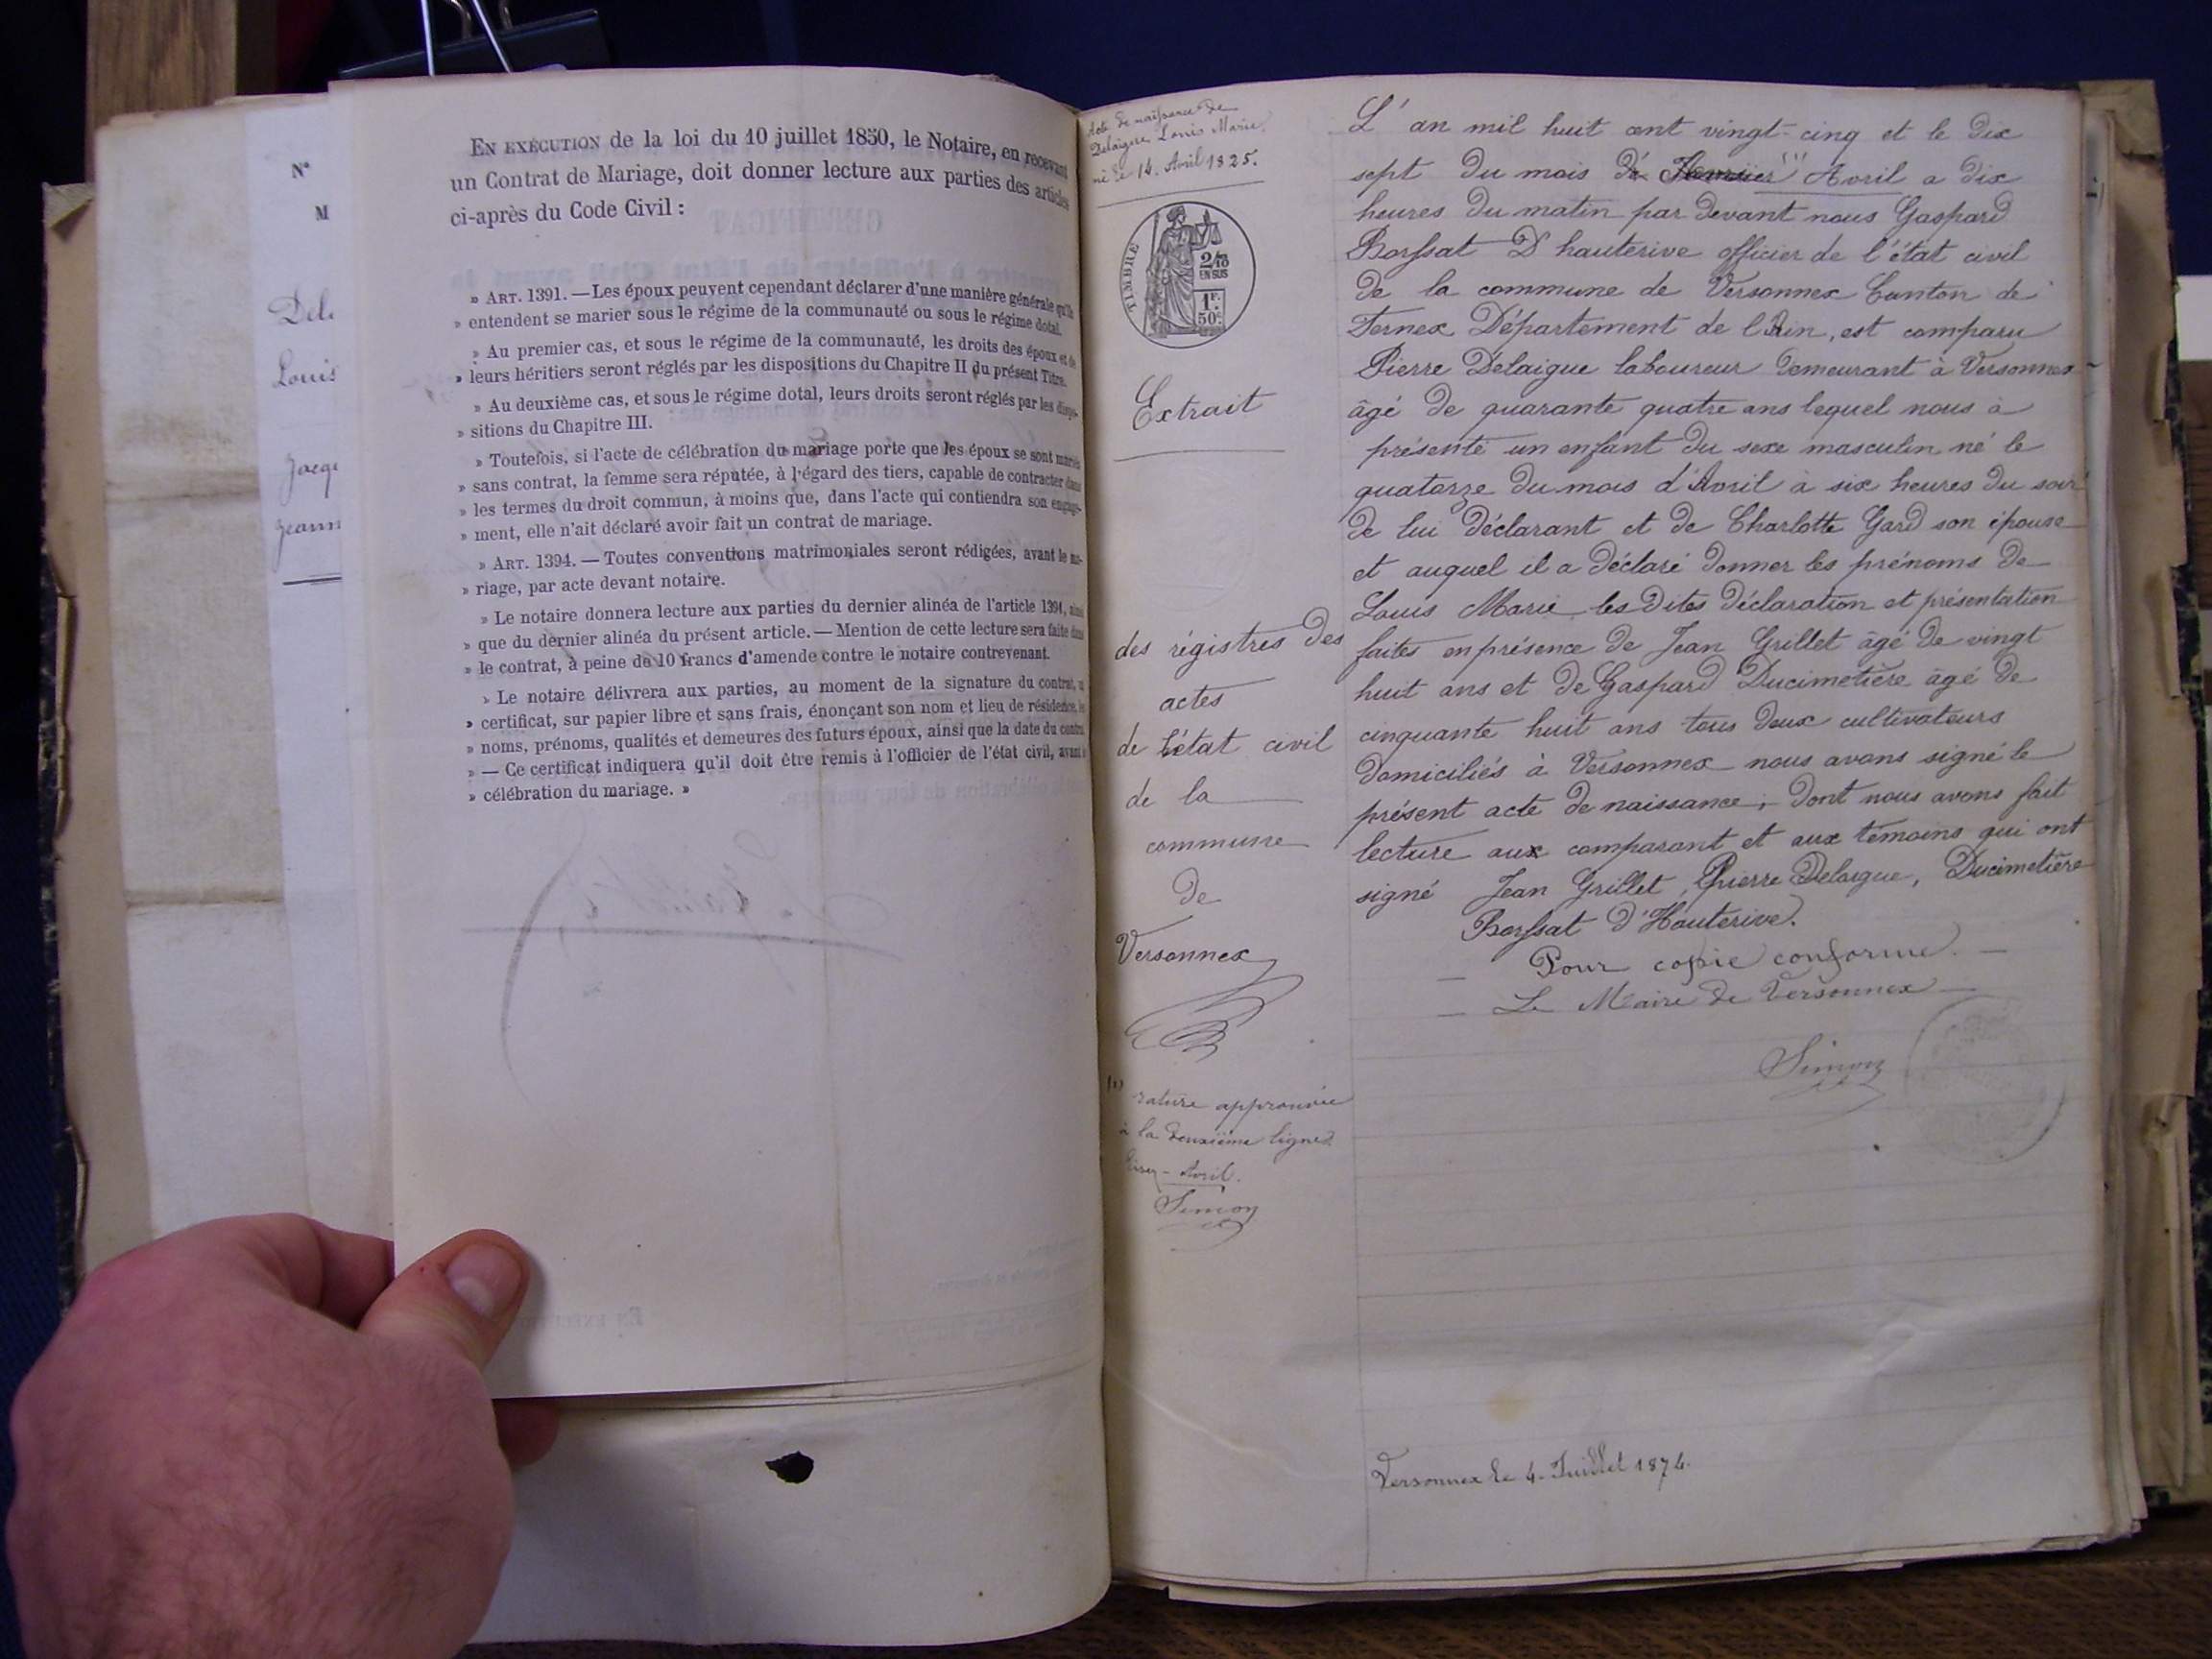 N°
M
Dela
Louis
Jacq
Jeann
EN EXÉCUTION de la loi du 10 juillet 1850, le Notaire, en recevant
un Contrat de Mariage, doit donner lecture aux parties des articles
ci-après du Code Civil :
» ART. 1391. — Les époux peuvent cependant déclarer d'une manière générale qu'ils
» entendent se marier sous le régime de la communauté ou sous le régime dotal.
» Au premier cas, et sous le régime de la communauté, les droits des époux et de
» leurs héritiers seront réglés par les dispositions du Chapitre II du présent Titre.
» Au deuxième cas, et sous le régime dotal, leurs droits seront réglés par les dispo-
» sitions du Chapitre III.
» Toutefois, si l'acte de célébration du mariage porte que les époux se sont mariés
» sans contrat, la femme sera réputée, à l'égard des tiers, capable de contracter dans
» les termes du droit commun, à moins que, dans l'acte qui contiendra son engage-
» ment, elle n'ait déclaré avoir fait un contrat de mariage.
» ART. 1394. — Toutes conventions matrimoniales seront rédigées, avant le ma-
» riage, par acte devant notaire.
» Le notaire donnera lecture aux parties du dernier alinéa de l'article 1391, ainsi
» que du dernier alinéa du présent article. — Mention de cette lecture sera faite dans
» le contrat, à peine de 10 francs d'amende contre le notaire contrevenant.
» Le notaire délivrera aux parties, au moment de la signature du contrat, un
» certificat, sur papier libre et sans frais, énonçant son nom et lieu de résidence, les
» noms, prénoms, qualités et demeures des futurs époux, ainsi que la date du contrat.
» — Ce certificat indiquera qu'il doit être remis à l'officier de l'état civil, avant la
» célébration du mariage. »
Acte de naissance de
Delaigue Louis Marie
né le 14. Avril 1825.
TIMBRE
2/10
EN SUS
1F.
50c.
Extrait
des régistres des
actes
de l'état civil
de la
commune
de
Versonnex
(1) rature approuvée
à la deuxième ligne
lisez - Avril.
Simon
L'an mil huit cent vingt-cinq et le dix
sept du mois de Avril a dix
heures du matin par devant nous Gaspard
Borssat D'hauterive officier de l'état civil
de la commune de Versonnex Canton de
Fernex Département de l'Ain, est comparu
Pierre Delaigue laboureur demeurant à Versonnex
âgé de quarante quatre ans lequel nous à
présenté un enfant du sexe masculin né le
quatorze du mois d'Avril à six heures du soir
de lui déclarant et de Charlotte Gard son épouse
et auquel il a déclaré donner les prénoms de
Louis Marie les dites déclaration et présentation
faites en présence de Jean Grillet âgé de vingt
huit ans et de Gaspard Ducimetière âgé de
cinquante huit ans tous deux cultivateurs
domiciliés à Versonnex nous avons signé le
présent acte de naissance, dont nous avons fait
lecture aux comparant et aux témoins qui ont
signé Jean Grillet, Pierre Delaigue, Ducimetière
Borssat D'Hauterive.
Pour copie conforme.
Le Maire de Versonnex
Simon
Versonnex le 4. Juillet 1874.